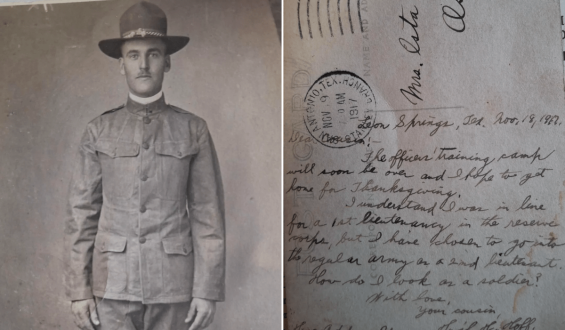 Mrs. Osta
ANTONIO, TEX.
NOV 9
AM
1917
Leon Springs, Tex. Nov. 18, 1917.
Dear Cousin:
The officers' training camp
will soon be over and I hope to get
home for Thanksgiving.
I understand I was in line
for a 1st lieutenancy in the reserve
corps, but I have chosen to go into
the regular army as a 2nd lieutenant.
How do I look as a soldier?
With love,
your cousin